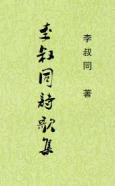 李叔同 著
李叔同詩歌集